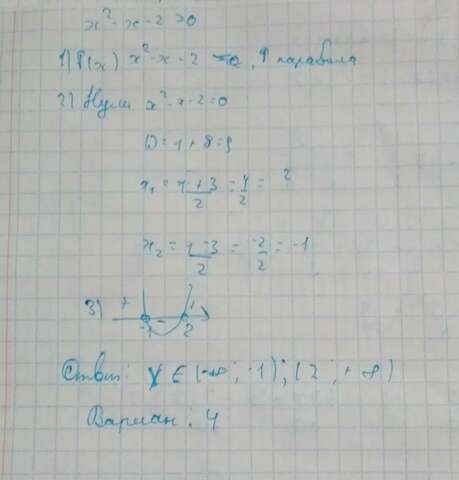 x² - x - 2 > 0
1) f(x) x² - x - 2 = 0, ↑ парабола
2) Нули x² - x - 2 = 0
D = 1 + 8 = 9
x₁ = 1 + 3 / 2 = 4 / 2 = 2
x₂ = 1 - 3 / 2 = -2 / 2 = -1
3) + - +
-1 2
Ответ: x ∈ (-∞; -1); (2; +∞)
Вариан: 4